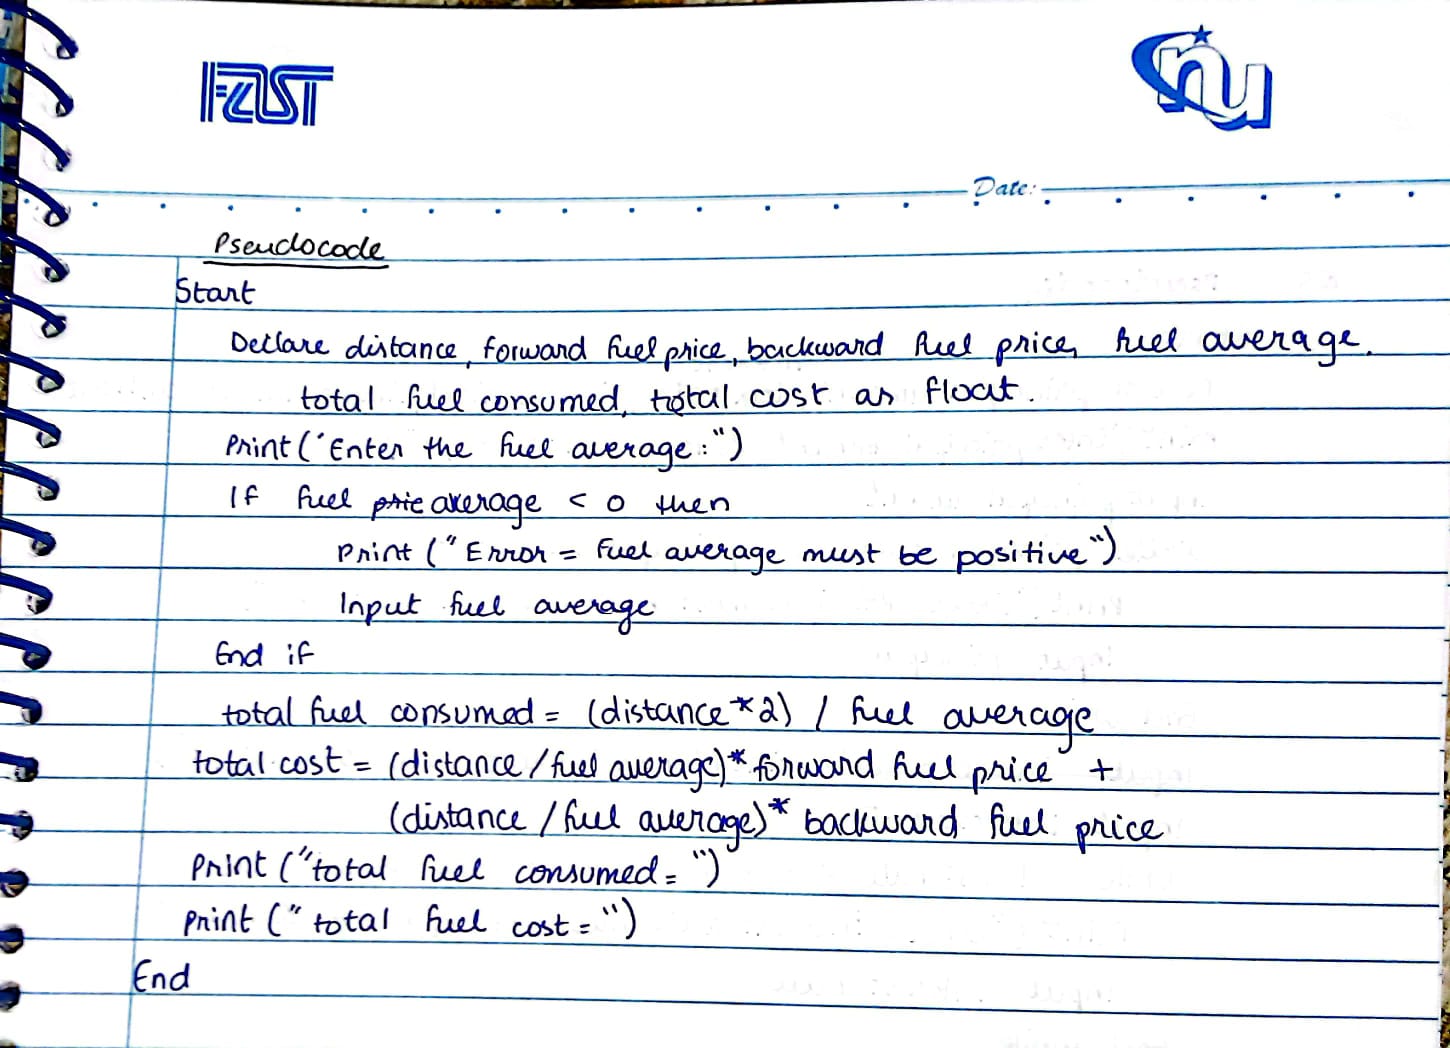 FAST
nu
Date:
Pseudocode
Start
Declare distance, forward fuel price, backward fuel price, fuel average,
total fuel consumed, total cost as float.
Print("Enter the fuel average:")
If fuel average < 0 then
Print ("Error = Fuel average must be positive")
Input fuel average
End if
total fuel consumed = (distance*2) / fuel average
total cost = (distance/fuel average)* forward fuel price +
(distance/fuel average)* backward fuel price
Print ("total fuel consumed= ")
Print ("total fuel cost=")
End